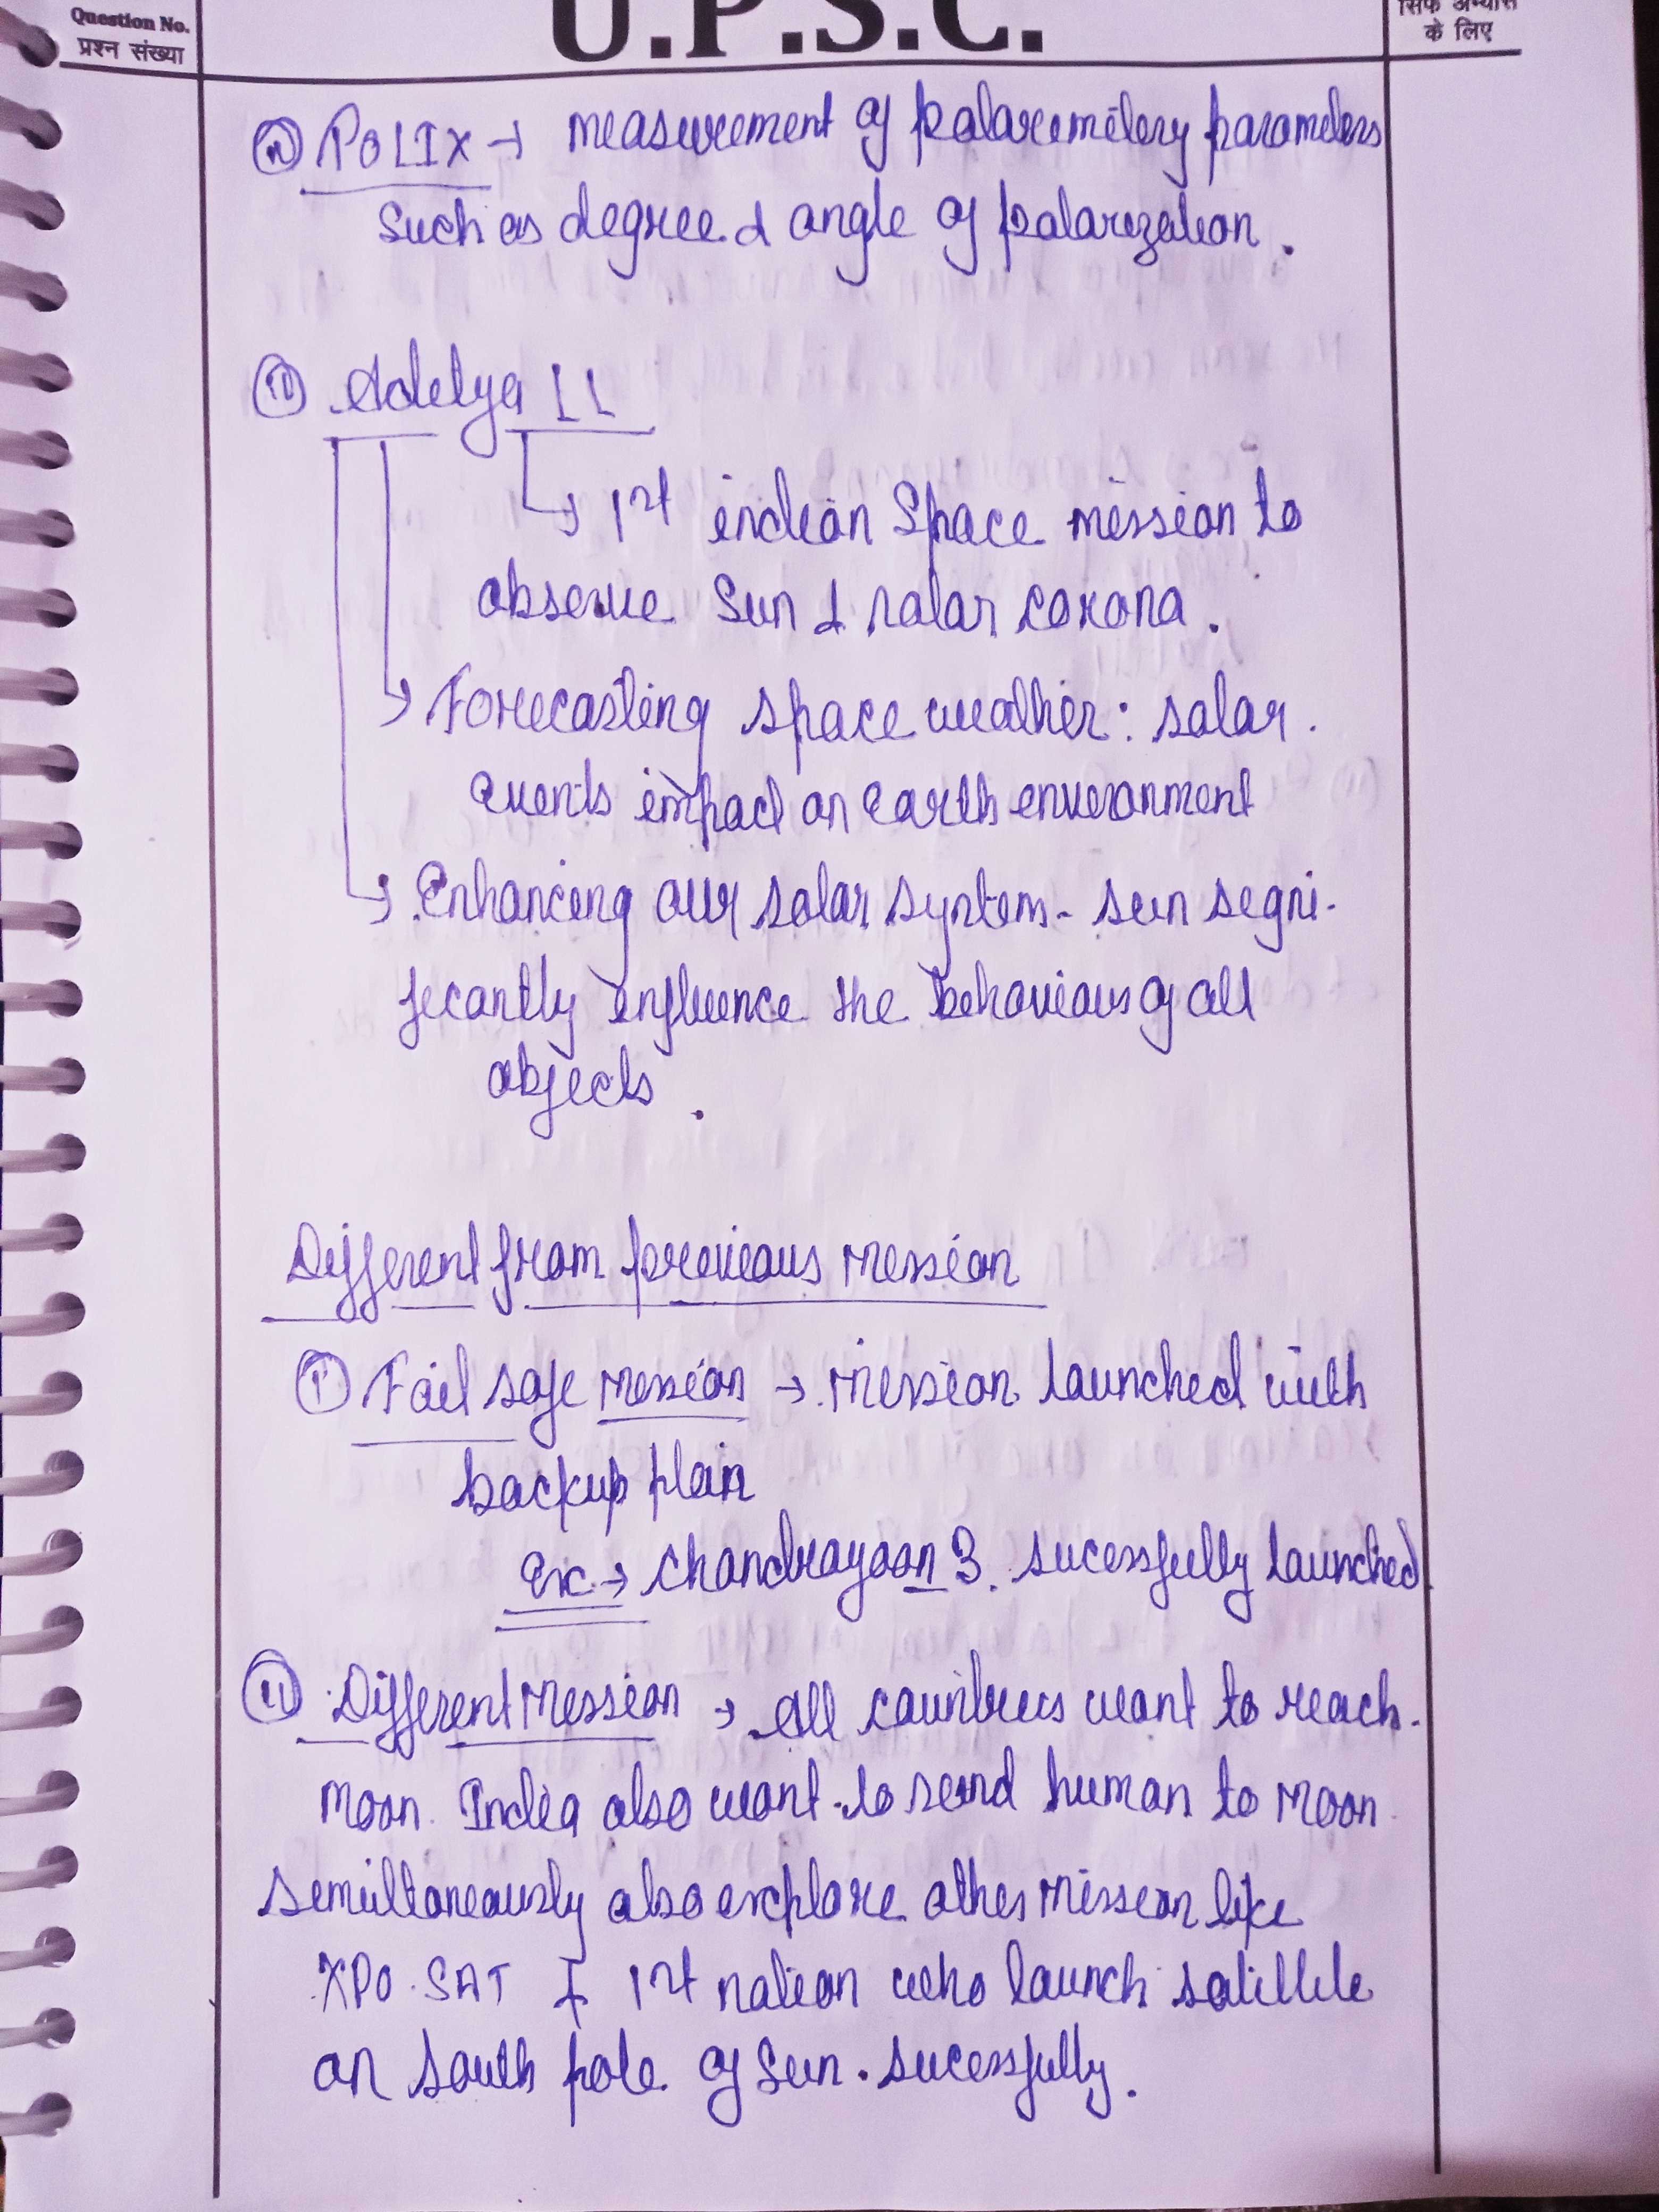 Question No.
प्रश्न संख्या
U.P.S.C.
सिर्फ अभ्यास
के लिए
POLIX → measurement of polarimetery parameters
Such as degree & angle of polarization.
(ii) Aditya L1
→ 1st indian Space mission to
observe Sun & solar corona.
→ Forecasting space weather: solar
events impact on earth environment
→ Enhancing our solar system - sun signi-
ficantly influence the behaviours of all
objects.
Different from previous mission
(i) Fail safe mission → mission launched with
backup plan
Ex → Chandrayaan 3 sucessfully launched.
(ii) Different Mission → All countries want to reach
moon. India also want to send human to Moon
simultaneously also explore other mission like
XPO SAT & 1st nation who launch satillite
on South pole of Sun. sucessfully.